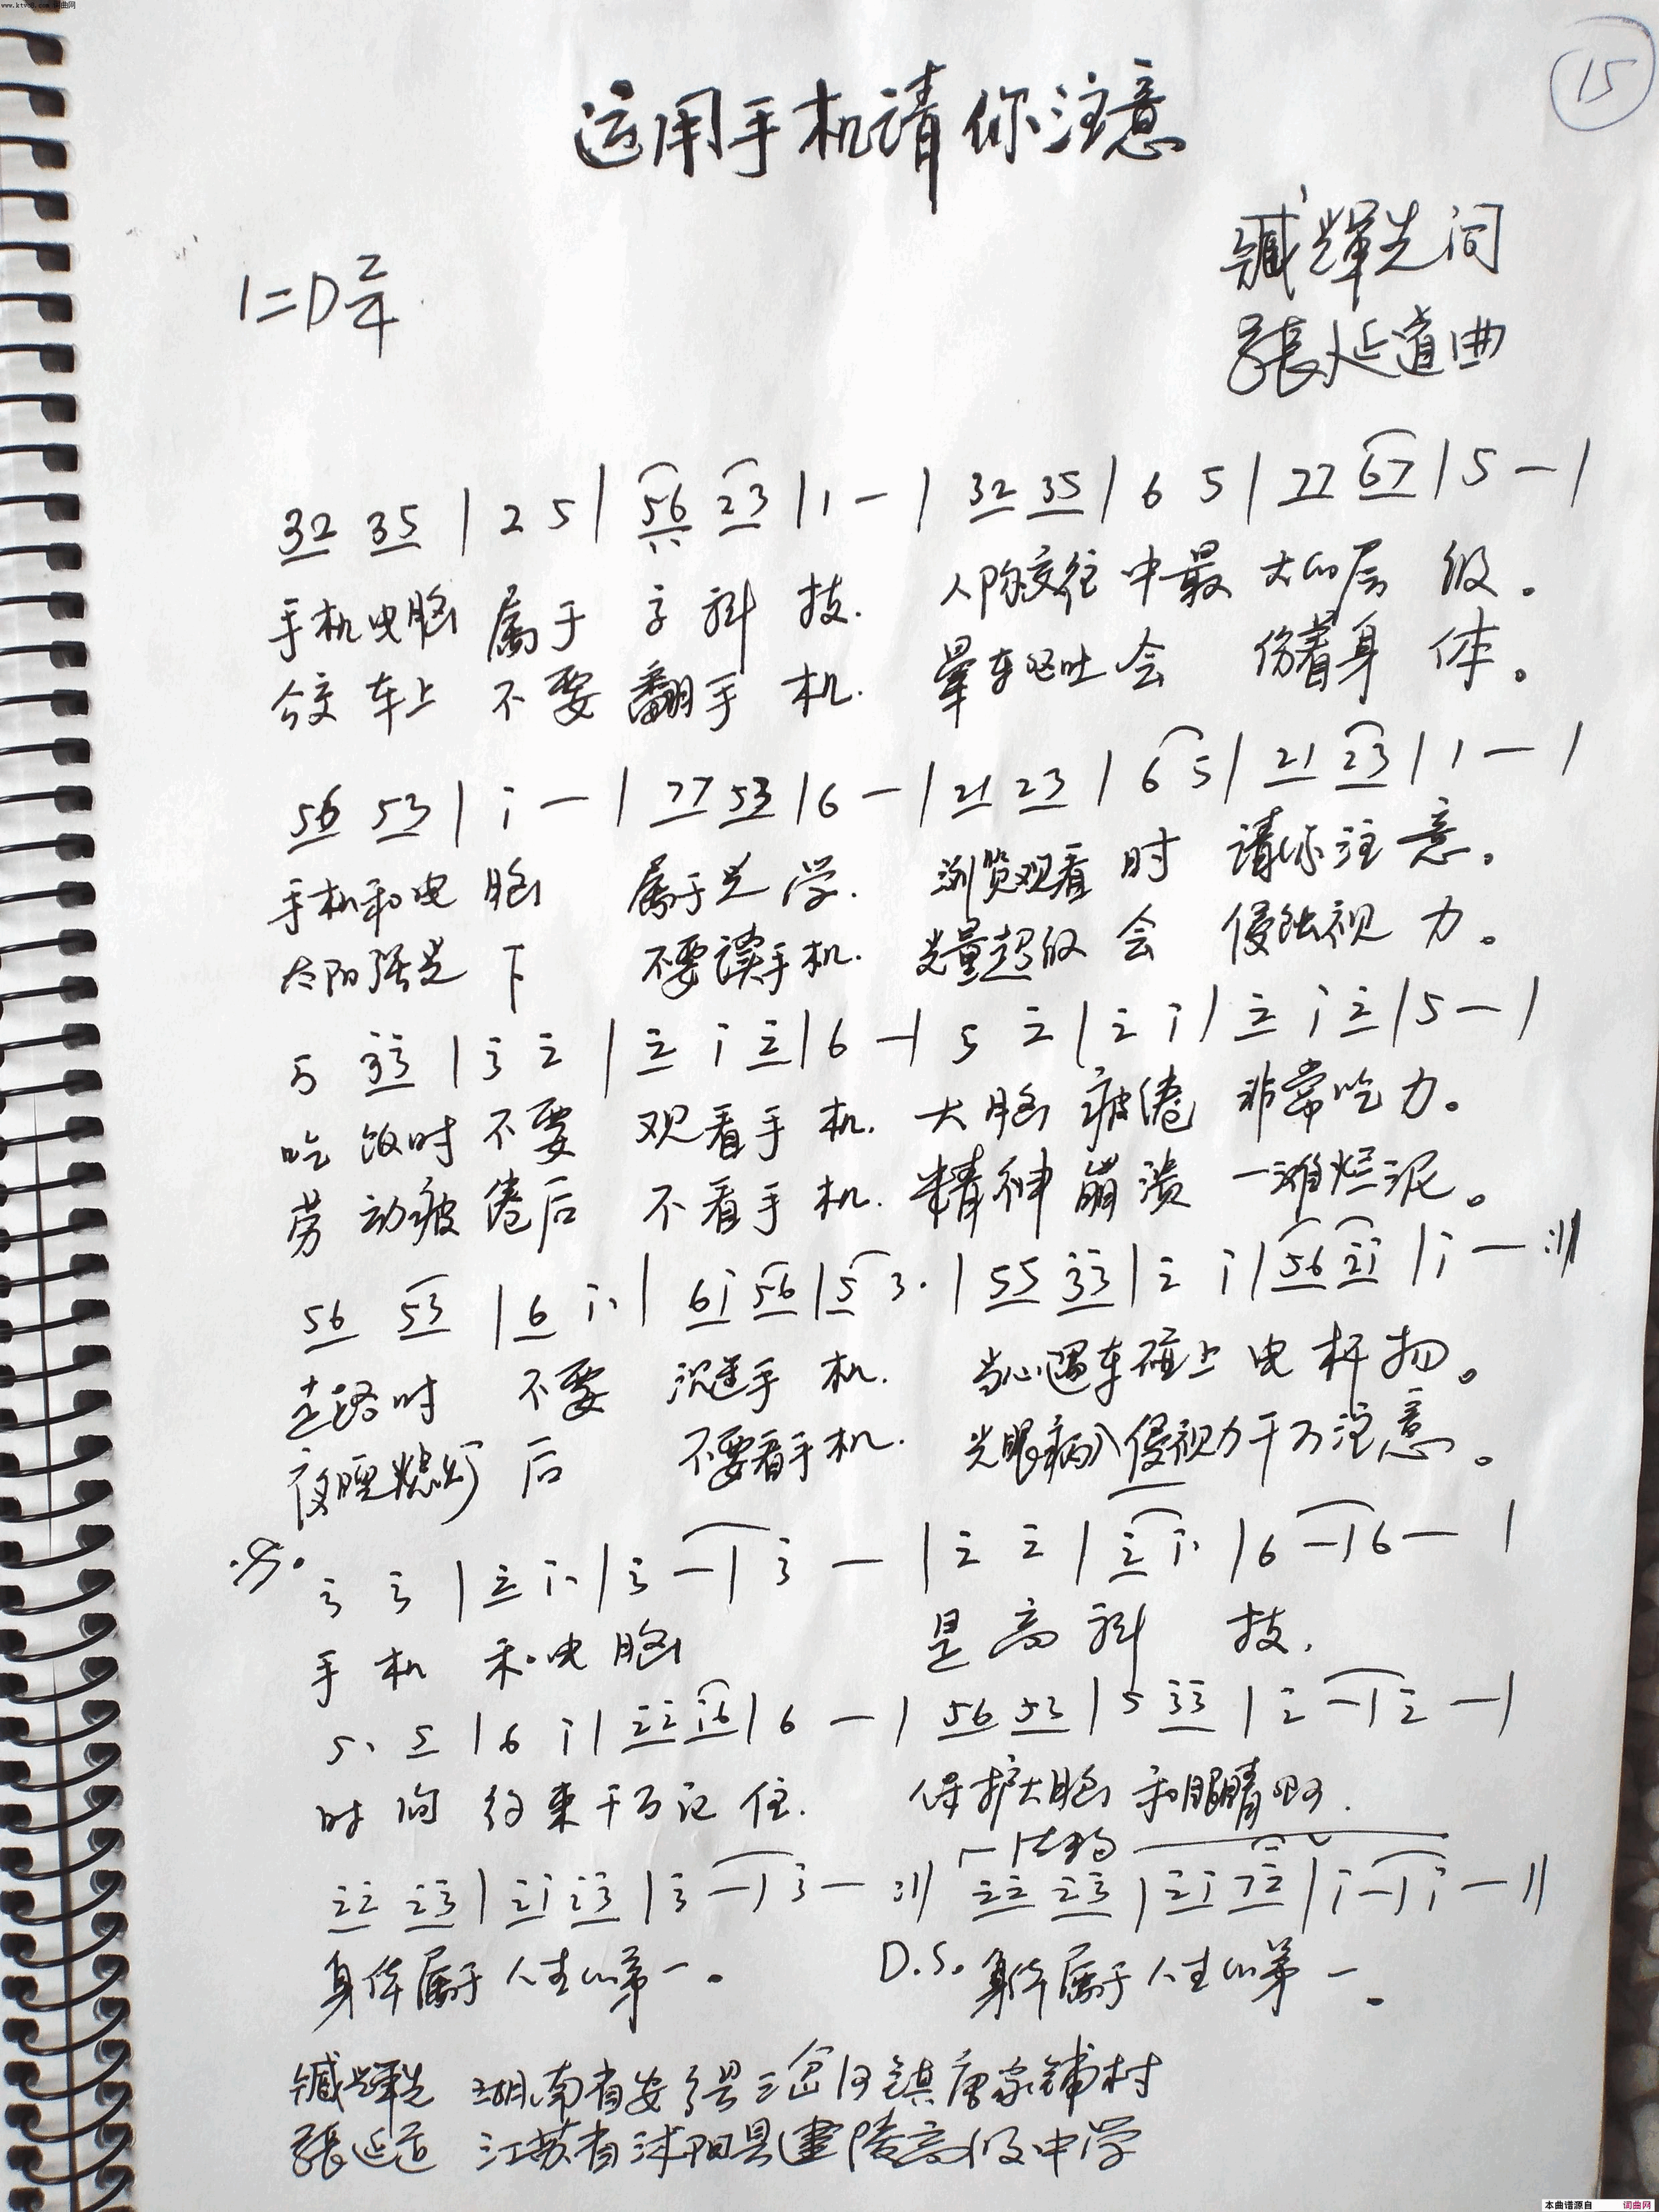 www.ktvc8.com 词曲网
15
运用手机请你注意
臧辉先词
1=D 2/4
張延道曲
32 35 | 2 5 | 56 23 | 1 — | 32 35 | 6 5 | 77 67 | 5 — |
手机电脑 属于 高科 技. 人际交往 中最 大的层 级。
公交车上 不要 翻手 机. 晕车呕吐 会 伤着身 体。
56 53 | i — | 77 53 | 6 — | 21 23 | 6 5 | 21 23 | 1 — |
手机和电 脑 属于光 学. 浏览观看 时 请你注 意。
太阳强光 下 不要读手机. 光量超级 会 侵蚀视 力。
5 33 | 3 2 | 2 i 2 | 6 — | 5 2 | 2 i | 2 i 2 | 5 — |
吃 饭时 不要 观看手 机. 大脑 疲倦 非常吃 力。
劳 动疲 倦后 不看手 机. 精神 崩溃 一滩烂泥。
56 53 | 6 i. | 6i 56 | 5 3. | 55 33 | 2 i | 56 2i | i — :||
走路时 不要 沉迷手 机. 当心遇车碰上 电 杆 扬。
夜睡熄灯 后 不要看手机. 光眼病入侵视力千万注意。
3 3 | 2 i. | 3 — | 3 — | 2 2 | 2 i. | 6 — | 6 — |
手 机 和电 脑 是 高 科 技.
5. 5 | 6 i | 22 i6 | 6 — | 56 53 | 5 33 | 2 — | 2 — |
时 间 约 束 千万记 住. 保护大脑 和眼睛
结构
22 23 | 2i 23 | 3 — | 3 — :|| 22 23 | 2i 72 | i — | i — ||
身体属于 人生的第一。 D.S. 身体属于 人生的第 一。
臧辉先 湖南省安乡县三岔河镇唐家铺村
張延道 江苏省沭阳县建陵高级中学
本曲谱源自 词曲网